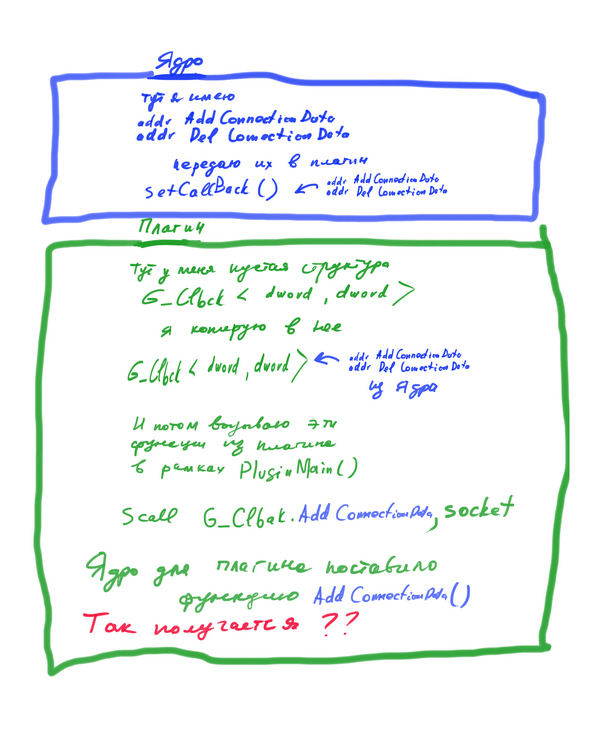 Ядро
тут я имею
addr AddConnectionData
addr Del ConnectionData
передаю их в плагин
setCallBack() ← addr AddConnectionData
addr Del ConnectionData
Плагин
тут у меня пустая структура
G_Clbck < dword , dword >
я копирую в нее
G_Clbck < dword , dword > ← addr AddConnectionData
addr Del ConnectionData
из Ядра
И потом вызываю эти
функции из плагина
в рамках PluginMain()
Scall G_Clbak.AddConnectionData, socket
Ядро для плагина поставило
функцию AddConnectionData()
Так получается ??